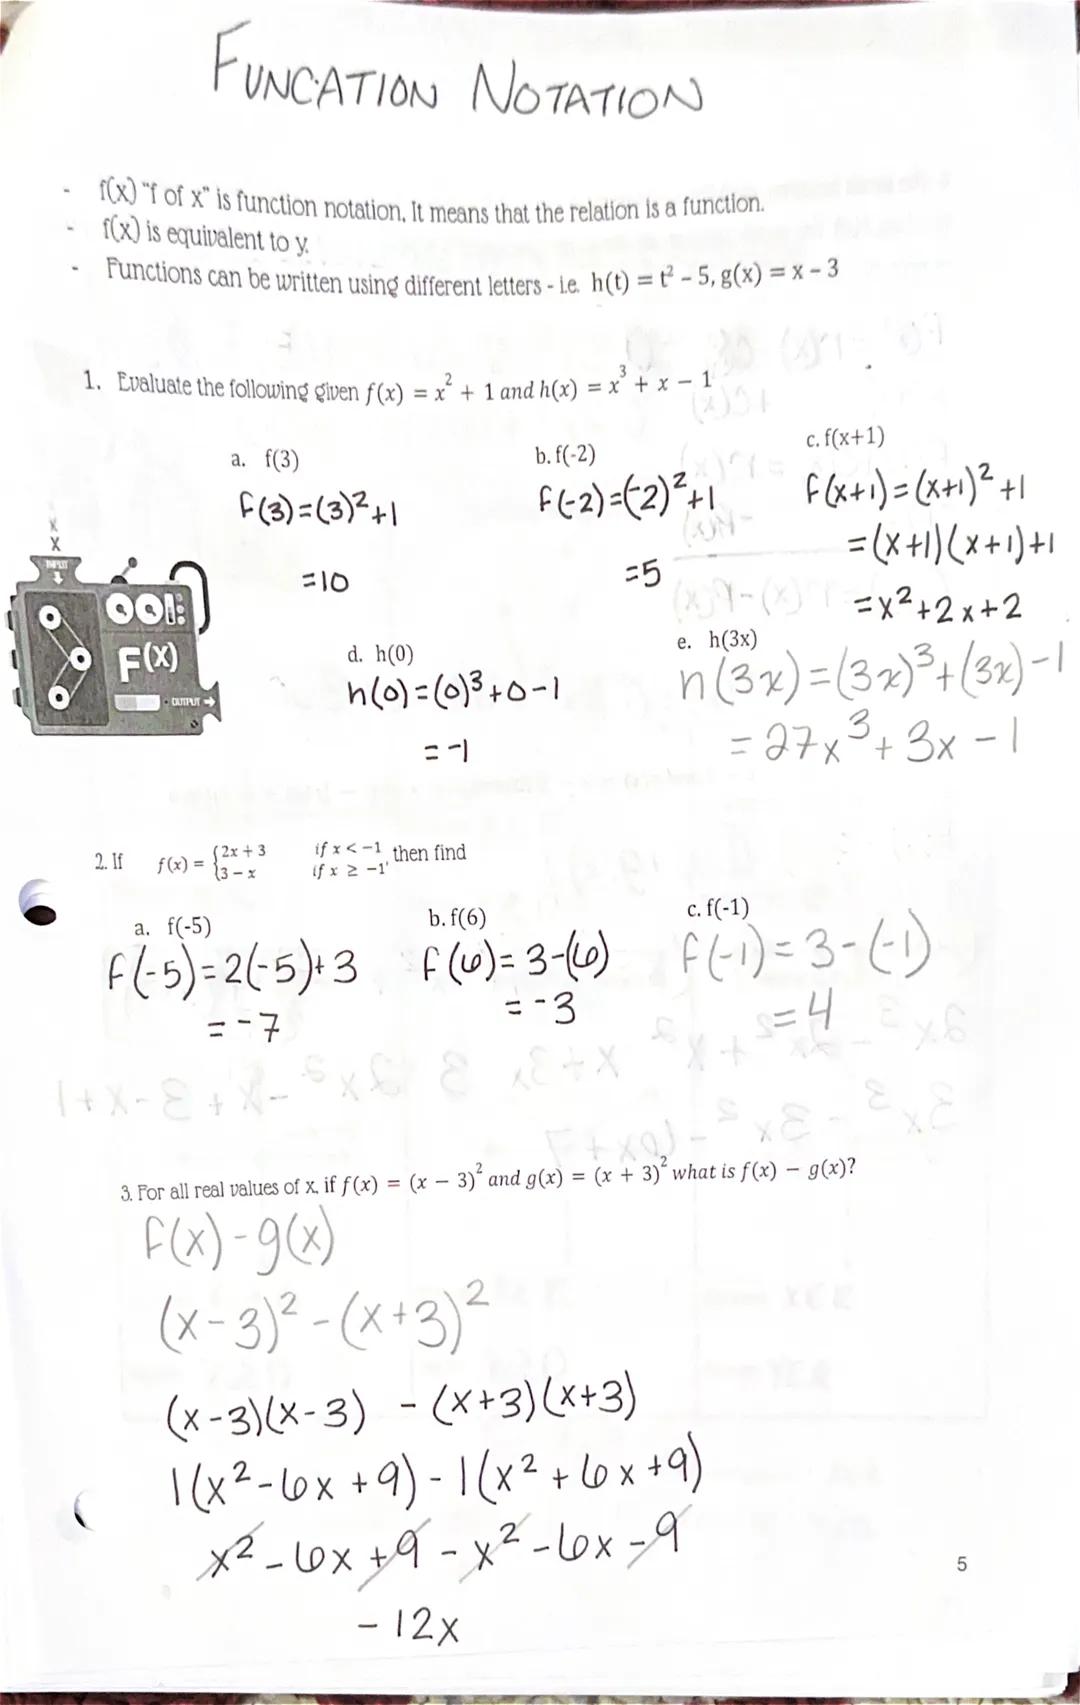 FUNCATION NOTATION
- f(x) "f of x" is function notation. It means that the relation is a function.
- f(x) is equivalent to y.
- Functions can be written using different letters - i.e. h(t) = t² - 5, g(x) = x - 3
1. Evaluate the following given f(x) = x² + 1 and h(x) = x³ + x - 1
a. f(3)
b. f(-2)
c. f(x+1)
f(3)=(3)²+1
f(-2)=(-2)²+1
f(x+1)=(x+1)²+1
=(x+1)(x+1)+1
=10
=5
=x²+2x+2
X
X
INPUT
F(X)
OUTPUT
d. h(0)
e. h(3x)
h(0)=(0)³+0-1
h(3x)=(3x)³+(3x)-1
=-1
=27x³+3x-1
2. If f(x) = {2x + 3 if x < -1
{3 - x if x ≥ -1, then find
a. f(-5)
b. f(6)
c. f(-1)
f(-5)=2(-5)+3
f(6)=3-(6)
f(-1)=3-(-1)
=-7
=-3
=4
3. For all real values of x, if f(x) = (x - 3)² and g(x) = (x + 3)² what is f(x) - g(x)?
f(x)-g(x)
(x-3)²-(x+3)²
(x-3)(x-3) - (x+3)(x+3)
1(x²-6x+9)-1(x²+6x+9)
x²-6x+9-x²-6x-9
-12x
5